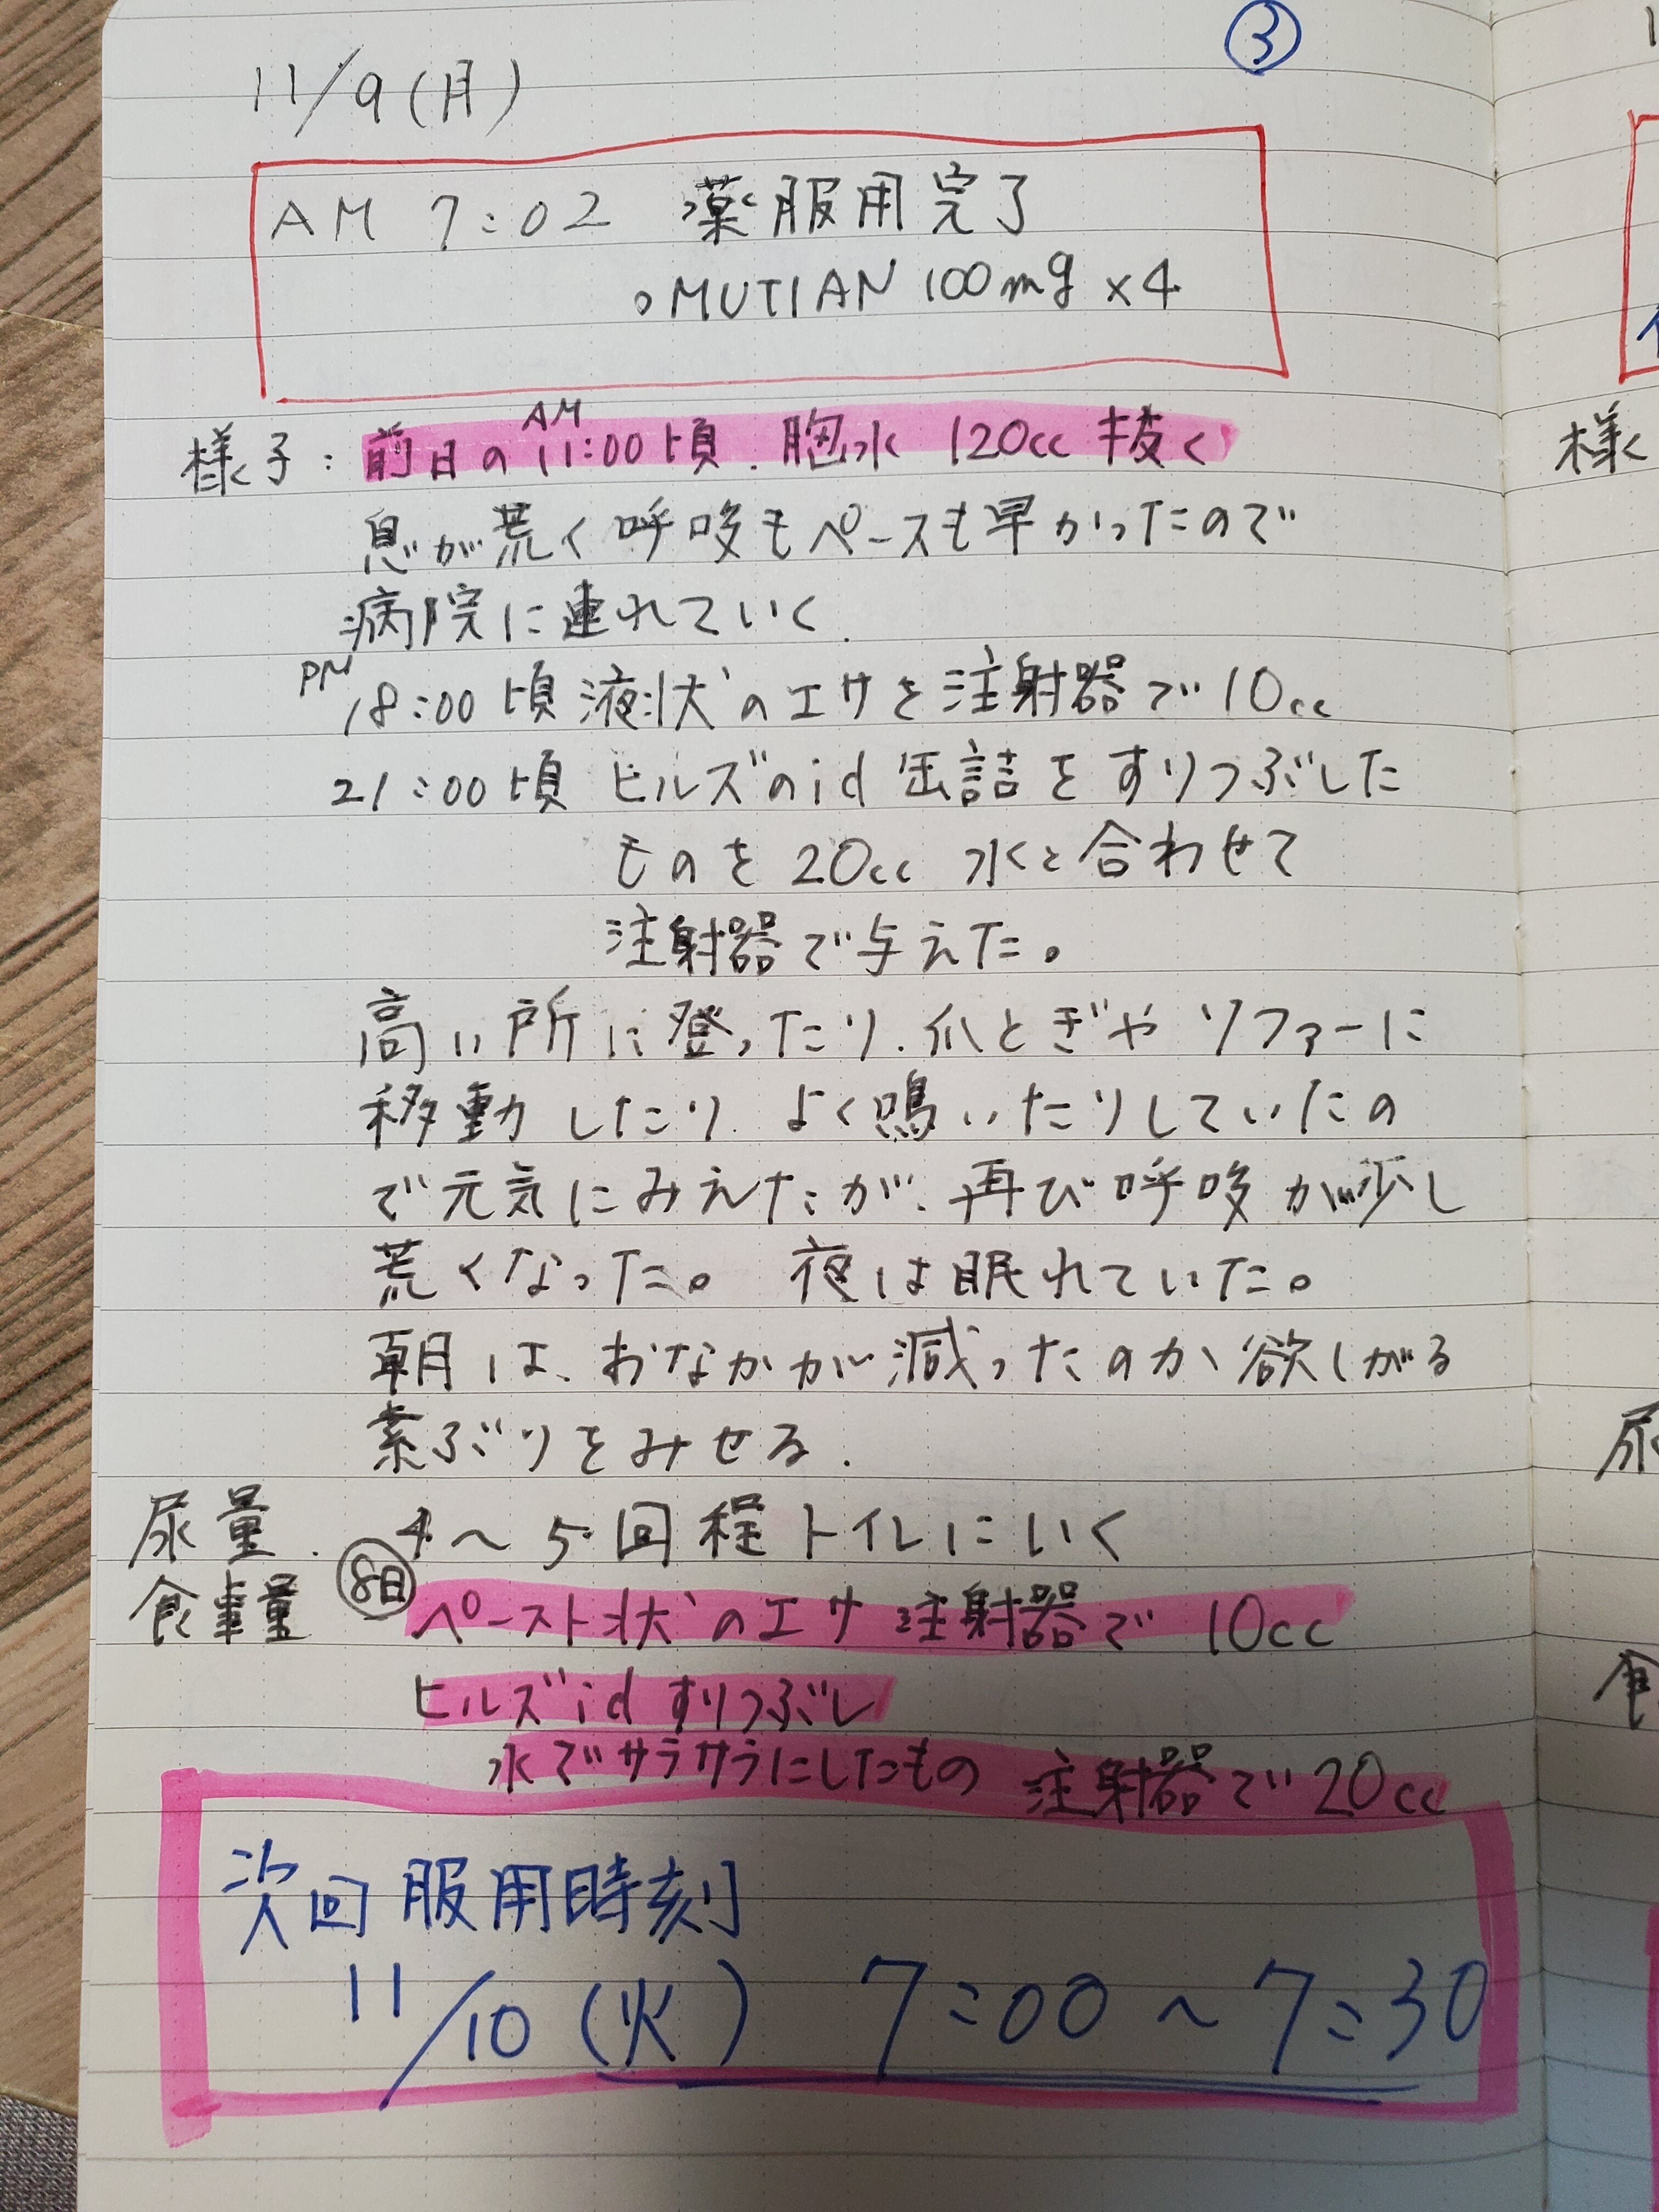 ③
11/9(月)
AM 7:02 薬服用完了
○MUTIAN 100mg×4
様子:前日のAM11:00頃.胸水 120cc 抜く
息が荒く呼吸もペースも早かったので
病院に連れていく.
PM 18:00頃 液状のエサを注射器で10cc
21:00頃 ヒルズのid缶詰をすりつぶした
ものを20cc 水と合わせて
注射器で与えた。
高い所に登ったり.爪とぎやソファーに
移動したり.よく鳴いたりしていたの
で元気にみえたが、再び呼吸が少し
荒くなった。 夜は眠れていた。
朝は、おなかが減ったのか、欲しがる
素ぶりをみせる.
尿量. 4〜5回程トイレにいく
食事量 8日 ペースト状のエサ 注射器で 10cc
ヒルズid すりつぶし
水でサラサラにしたもの 注射器で20cc
次回服用時刻
11/10(火) 7:00〜7:30
様
尿
食